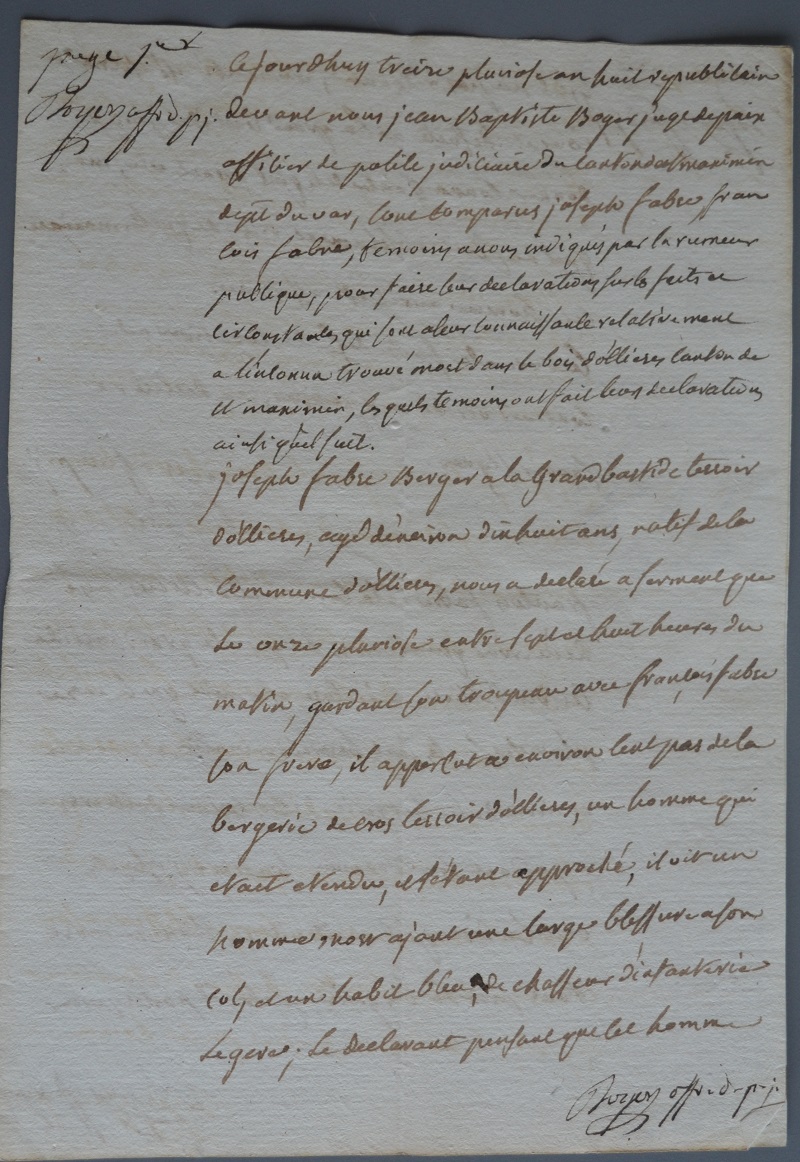 page 1.ere
Boyer off. d. p. j.
Cejourdhuy treize pluviose an huit republicain
devant nous jean Baptiste Boyer juge de paix
officier de police judiciaire du canton de st maximin
dept. du var, sont comparus joseph fabre fran
cois fabre, temoins a nous indiqués par la rumeur
publique, pour faire leur declarations sur les faits et
circonstances qui sont a leur connaissance relativement
a l'inconnu trouvé mort dans le bois d'ollieres canton de
st maximin, lesquels temoins ont fait leurs declarations
ainsi qu'el suit.
joseph fabre Berger a la Grand bastide terroir
d'ollieres, agé d'environ dixhuit ans, natif de la
commune d'ollieres, nous a declaré a serment que
le onze pluviose entre sept et huit heures du
matin, gardant son troupeau avec françois fabre
son frere, il apperçut a environ cent pas de la
bergerie de cros terroir d'ollieres, un homme qui
etait etendu, et s'etant approché, il vit un
homme mort ajant une large blessure a son
col, et un habit bleu, de chasseur d'infanterie
legere; le declarant pensant que cet homme
Boyer off. d. p. j.